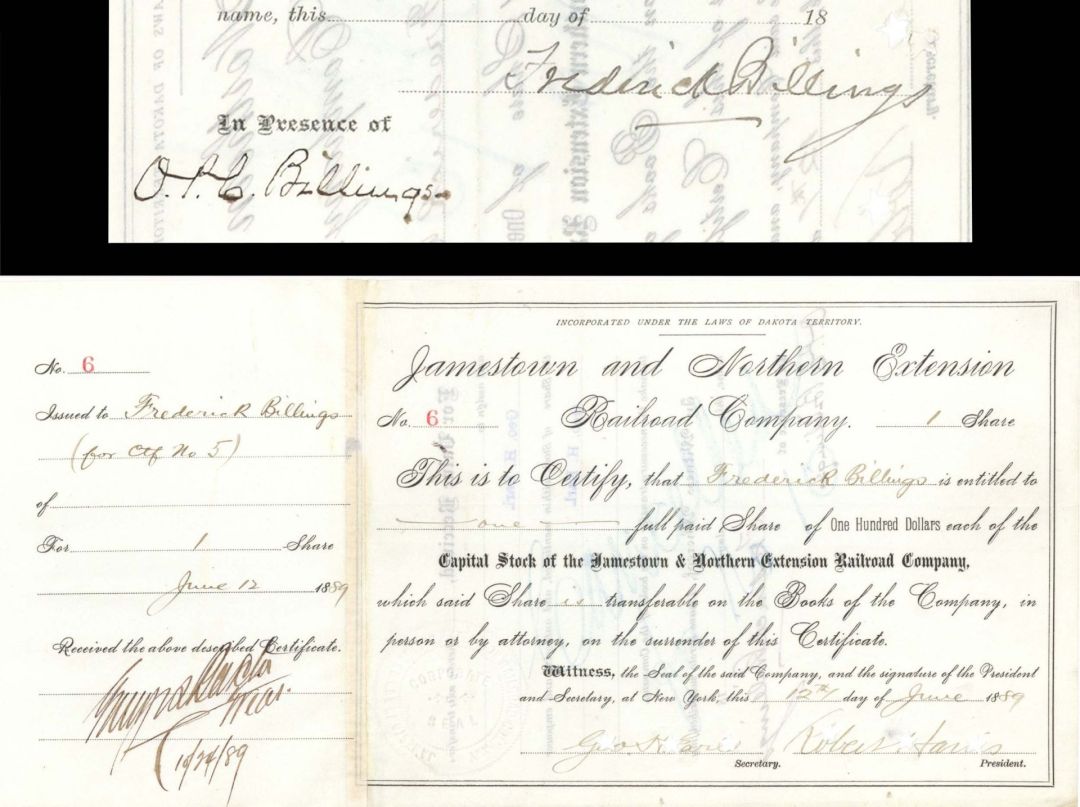 name, this day of 18
Frederick Billings
In Presence of
O.P.C. Billings
No. 6
Issued to Frederick Billings
(for Ctf No 5)
of
For 1 Share
June 12 1889
Received the above described Certificate.
Treas.
10/24/89
INCORPORATED UNDER THE LAWS OF DAKOTA TERRITORY.
Jamestown and Northern Extension
No. 6 Railroad Company. 1 Share
This is to Certify, that Frederick Billings is entitled to
one full paid Share of One Hundred Dollars each of the
Capital Stock of the Jamestown & Northern Extension Railroad Company,
which said Share is transferable on the Books of the Company, in
person or by attorney, on the surrender of this Certificate.
Witness, the Seal of the said Company, and the signature of the President
and Secretary, at New York, this 12th day of June 1889
Geo. H. Earl Robert Harris
Secretary. President.